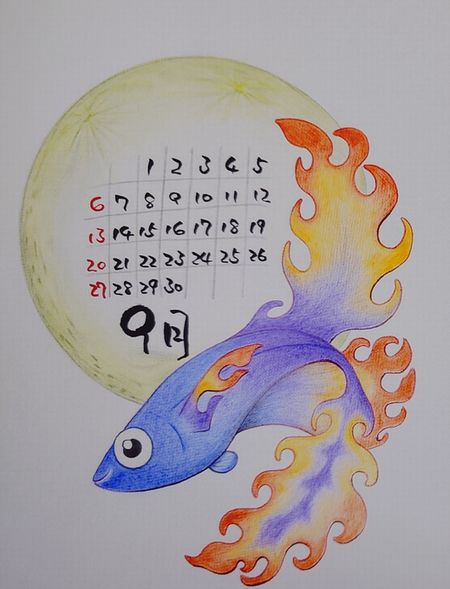 1 2 3 4 5
6 7 8 9 10 11 12
13 14 15 16 17 18 19
20 21 22 23 24 25 26
27 28 29 30
9月